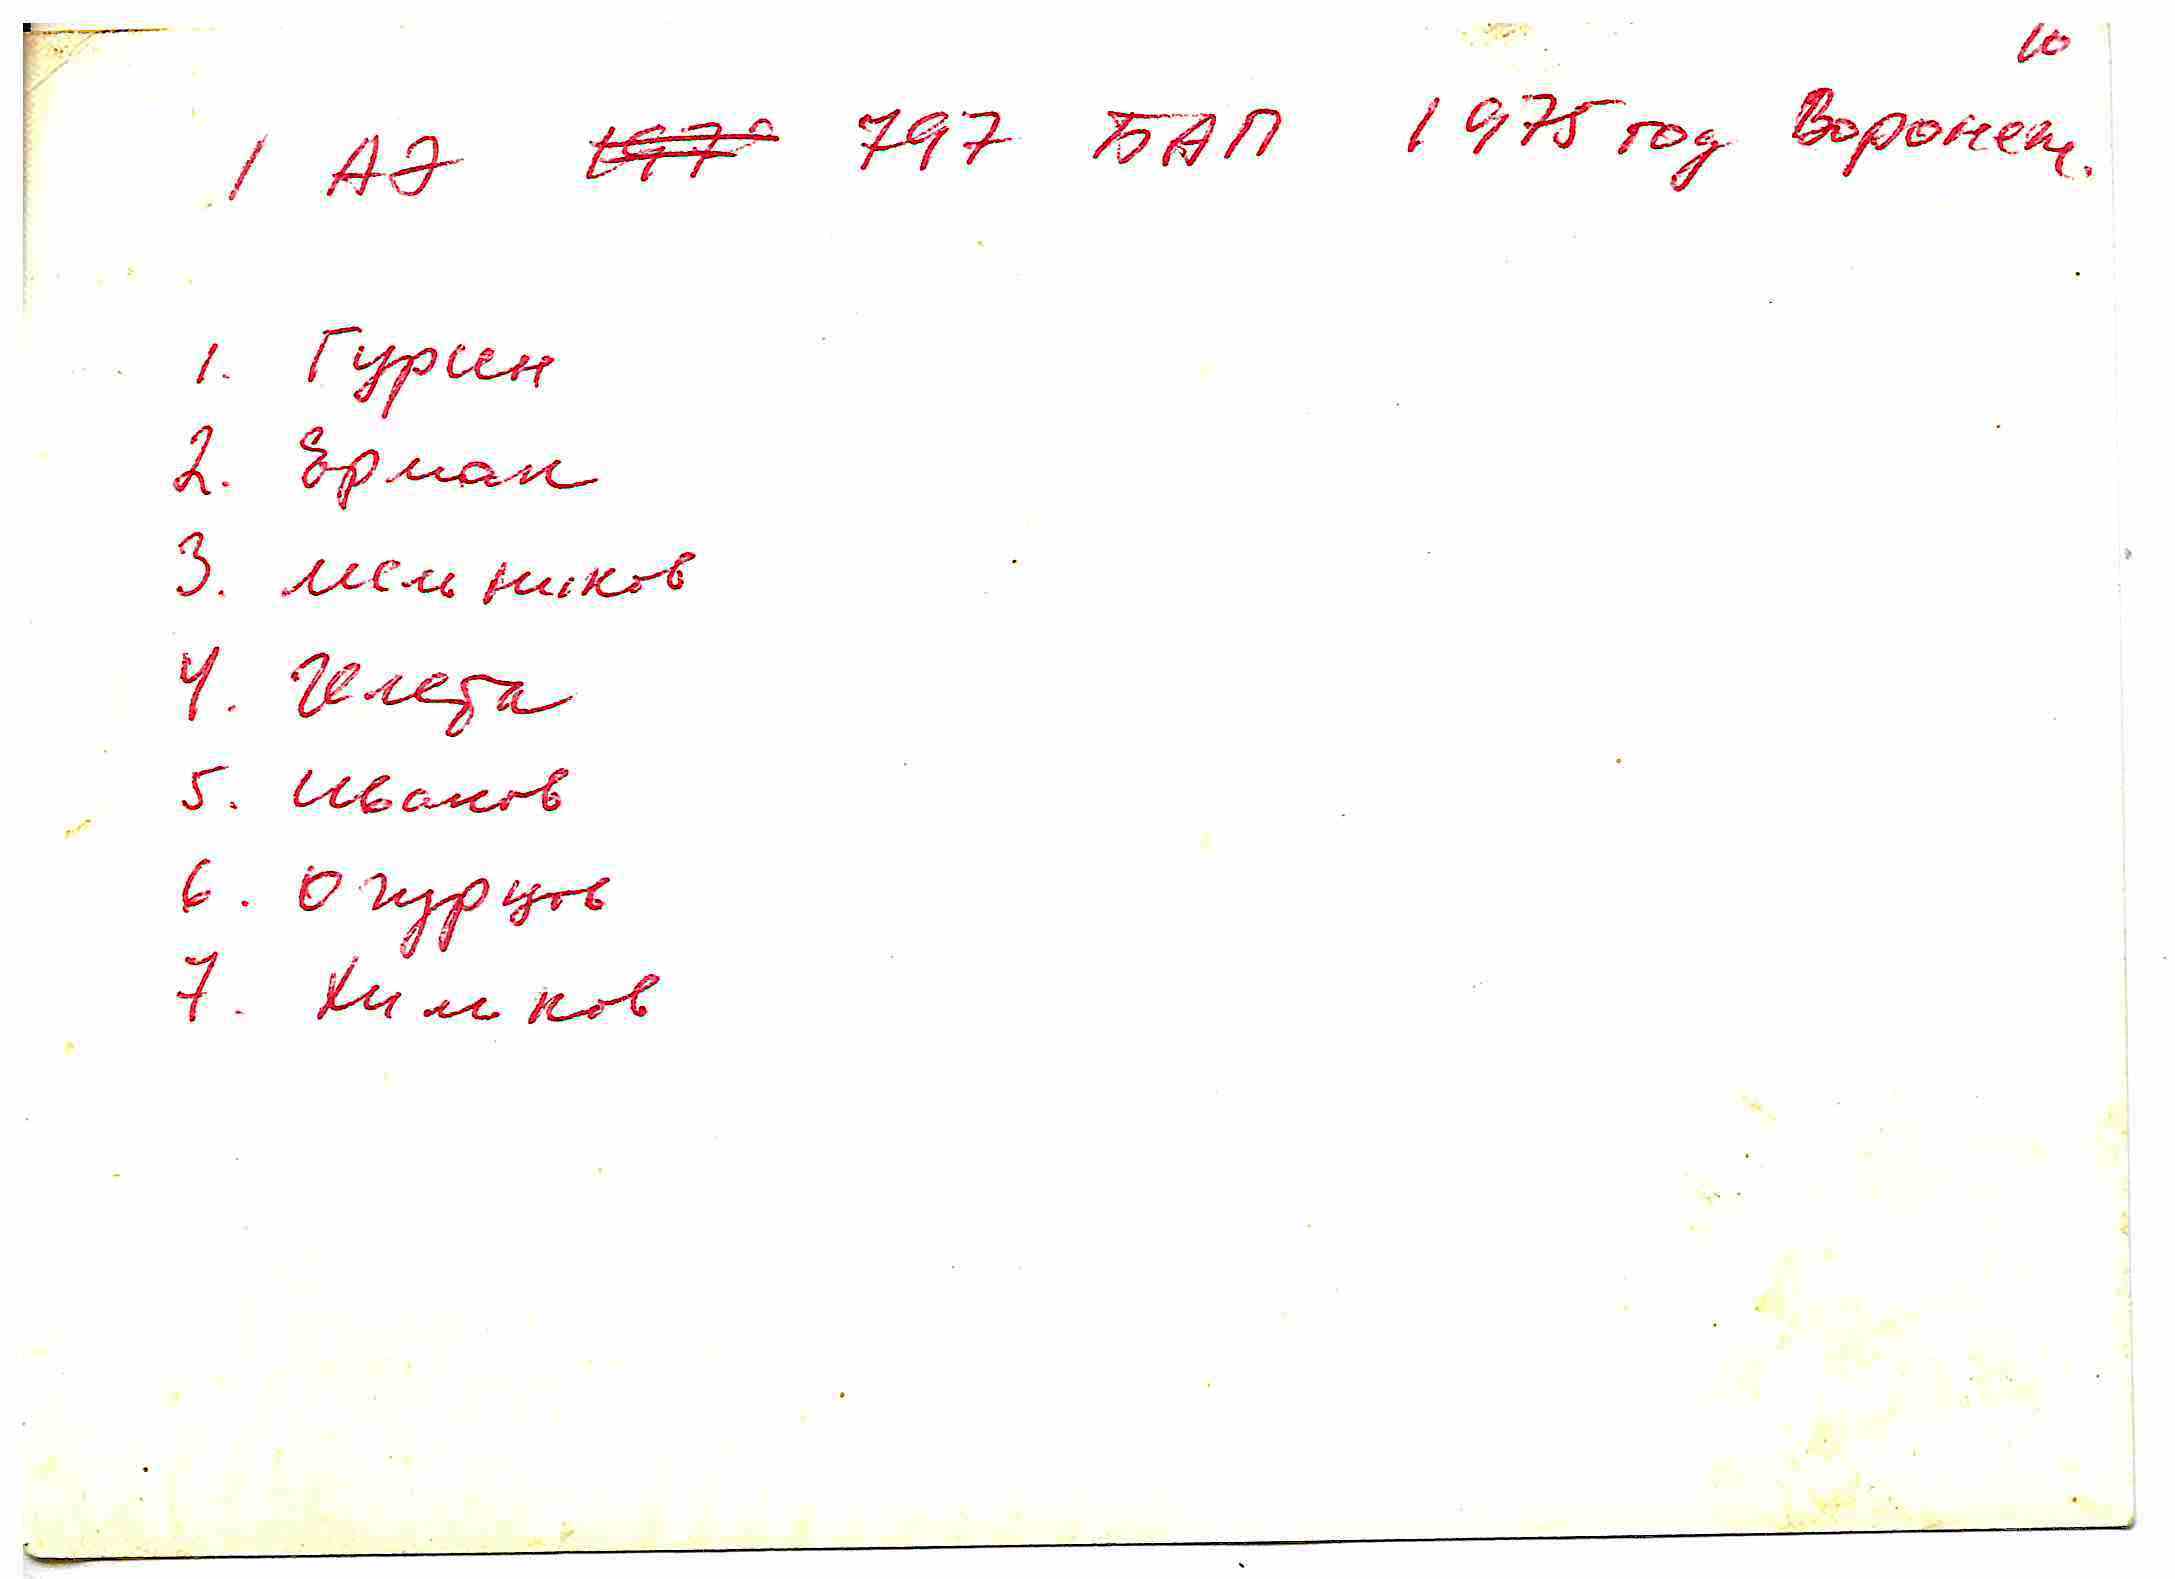 10
1 АЭ 797 БАП 1975 год Воронеж.
1. Гурин
2. Ермак
3. Мельников
4. Челета
5. Иванов
6. Огурцов
7. Хильков